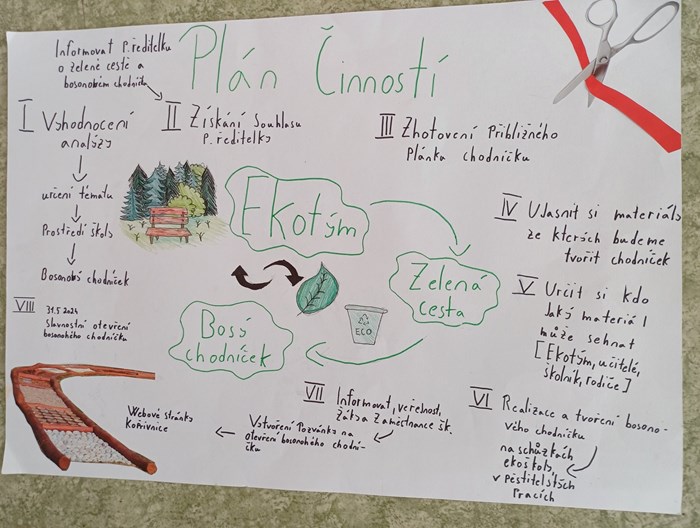 Plán Činností
Informovat p.ředitelku
o zelené cestě a
bosonohém chodníčku
I Vyhodnocení
analýzy
určení tématu
Prostředí školy
Bosonohý chodníček
II Získání souhlasu
p.ředitelky
III Zhotovení přibližného
plánka chodníčku
IV Ujasnit si materiály
ze kterých budeme
tvořit chodníček
V Určit si kdo
jaký materiál
může sehnat
[Ekotým, učitelé,
školník, rodiče]
VI Realizace a tvoření bosono-
vého chodníčku
na schůzkách
ekoškoly
v pěstitelských
pracích
VII Informovat, veřejnost,
žáky a zaměstnance šk.
Vytvoření pozvánky na
otevření bosonohého chodní-
čku
Webové stránky
Kořivnice
VIII 31.5 2024
slavnostní otevření
bosonohého chodníčku
Ekotým
Zelená
cesta
Bosý
chodníček
ECO